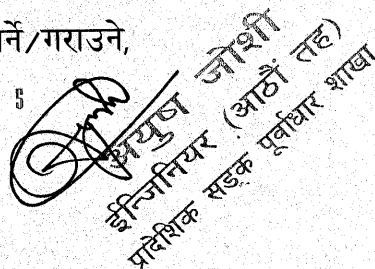 र्ने/गराउने,
5
आयुष जोशी
ईन्जिनियर (आठौं तह)
प्रादेशिक सडक पूर्वाधार शाखा